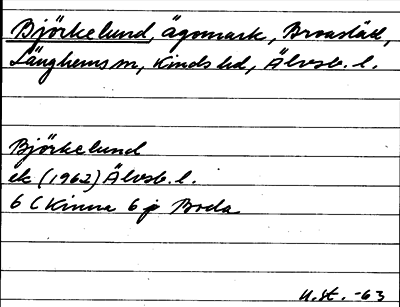 Björkelund, ägomark, Broaslätt,
Länghems sn, Kinds hd, Älvsb. l.
Björkelund
ek (1962) Älvsb. l.
6 C Kinna 6 j Boda
U.St. -63